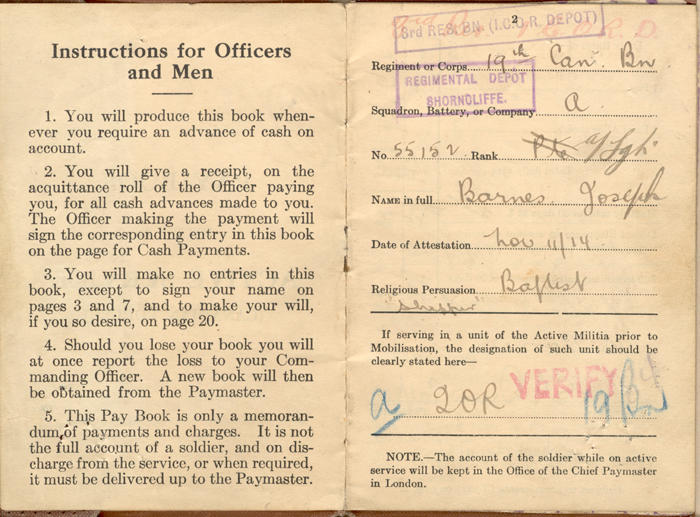 Instructions for Officers
and Men
1. You will produce this book when-
ever you require an advance of cash on
account.
2. You will give a receipt, on the
acquittance roll of the Officer paying
you, for all cash advances made to you.
The Officer making the payment will
sign the corresponding entry in this book
on the page for Cash Payments.
3. You will make no entries in this
book, except to sign your name on
pages 3 and 7, and to make your will,
if you so desire, on page 20.
4. Should you lose your book you will
at once report the loss to your Com-
manding Officer. A new book will then
be obtained from the Paymaster.
5. This Pay Book is only a memoran-
dum of payments and charges. It is not
the full account of a soldier, and on dis-
charge from the service, or when required,
it must be delivered up to the Paymaster.
2
3rd RES. BN (1.C.O.R. DEPOT)
Regiment or Corps 19th Can. Bn
REGIMENTAL DEPOT
SHORNCLIFFE.
Squadron, Battery, or Company A
No. 55152 Rank Pte a/Sgt
NAME in full Barnes Joseph
Date of Attestation Nov 11/14
Religious Persuasion Baptist
If serving in a unit of the Active Militia prior to
Mobilisation, the designation of such unit should be
clearly stated here—
VERIFY
a QOR 19 Bn
NOTE.—The account of the soldier while on active
service will be kept in the Office of the Chief Paymaster
in London.